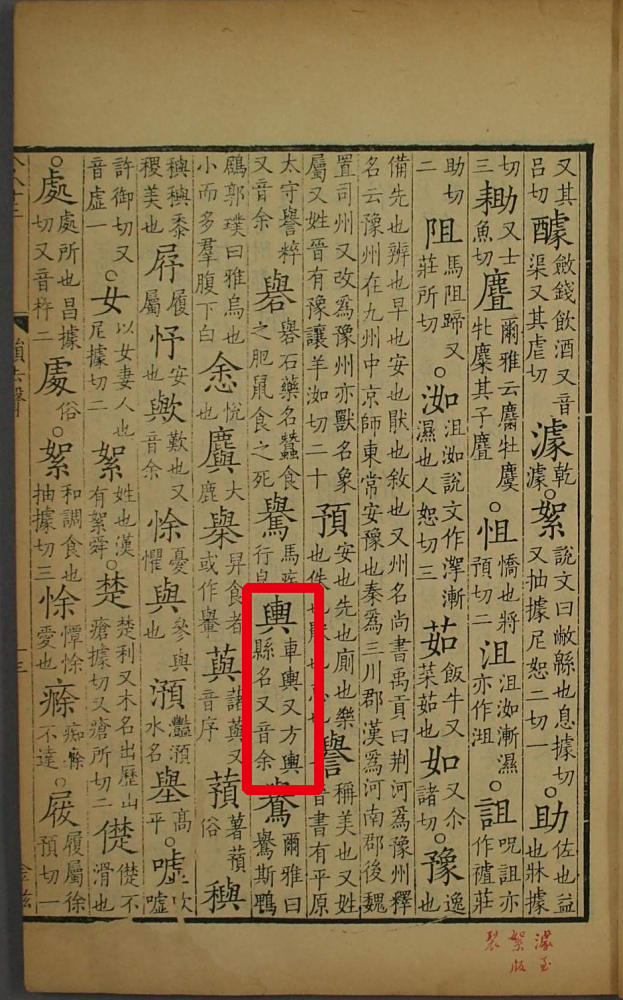 又其呂切醵斂錢飲酒又音渠又其虐切澽乾澽○絮說文曰敝緜也息據切又抽據尼恕二切一○助佐也益也牀據
切三耡又士魚切麆爾雅云麕牡麌牝麜其子麆○怚憍也將預切二沮沮洳漸濕亦作沮○詛呪詛亦作莊
助切二阻馬阻蹄又莊所切○洳沮洳說文作澤漸濕也人恕切三茹飯牛又菜茹也如又尒諸切○豫逸也
備先也辨也早也安也猒也敘也又州名尚書禹貢曰荆河爲豫州釋名云豫州在九州中京師東常安豫也秦爲三川郡漢爲河南郡後魏
置司州又改爲豫州亦獸名象屬又姓晉有豫讓羊洳切二十預安也先也廁也樂也佚也猒也怠也譽稱美也又姓晉書有平原
太守譽粹又音余礜礜石藥名蠶食之肥鼠食之死鸒馬疾行皃輿車輿又方輿縣名又音余鸒爾雅曰鸒斯鵯
鶋郭璞曰雅烏也小而多羣腹下白悆悅也大鹿舁食者或作轝藇藷藇又音序蕷薯蕷俗穥
穥穥黍稷美也履屬忬安也歟歎也又音余悇憂懼與參與也澦灩澦水名舉高平○嘘吹嘘
許御切又音虛一○女以女妻人也尼據切二絮姓也漢有絮舜○楚楚利又木名出歷山瘡據切又瘡所切二儊儊不滑也
○處處所也昌據切又音杵二䖏俗○絮和調食也抽據切三悇憛悇愛也痴不達○履屬徐預切一